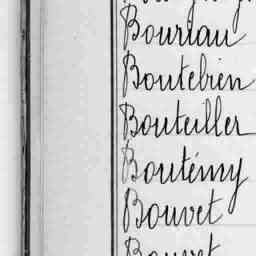 Bouriau
Boutebien
Bouteiller
Boutémy
Bouvet
Bouvet